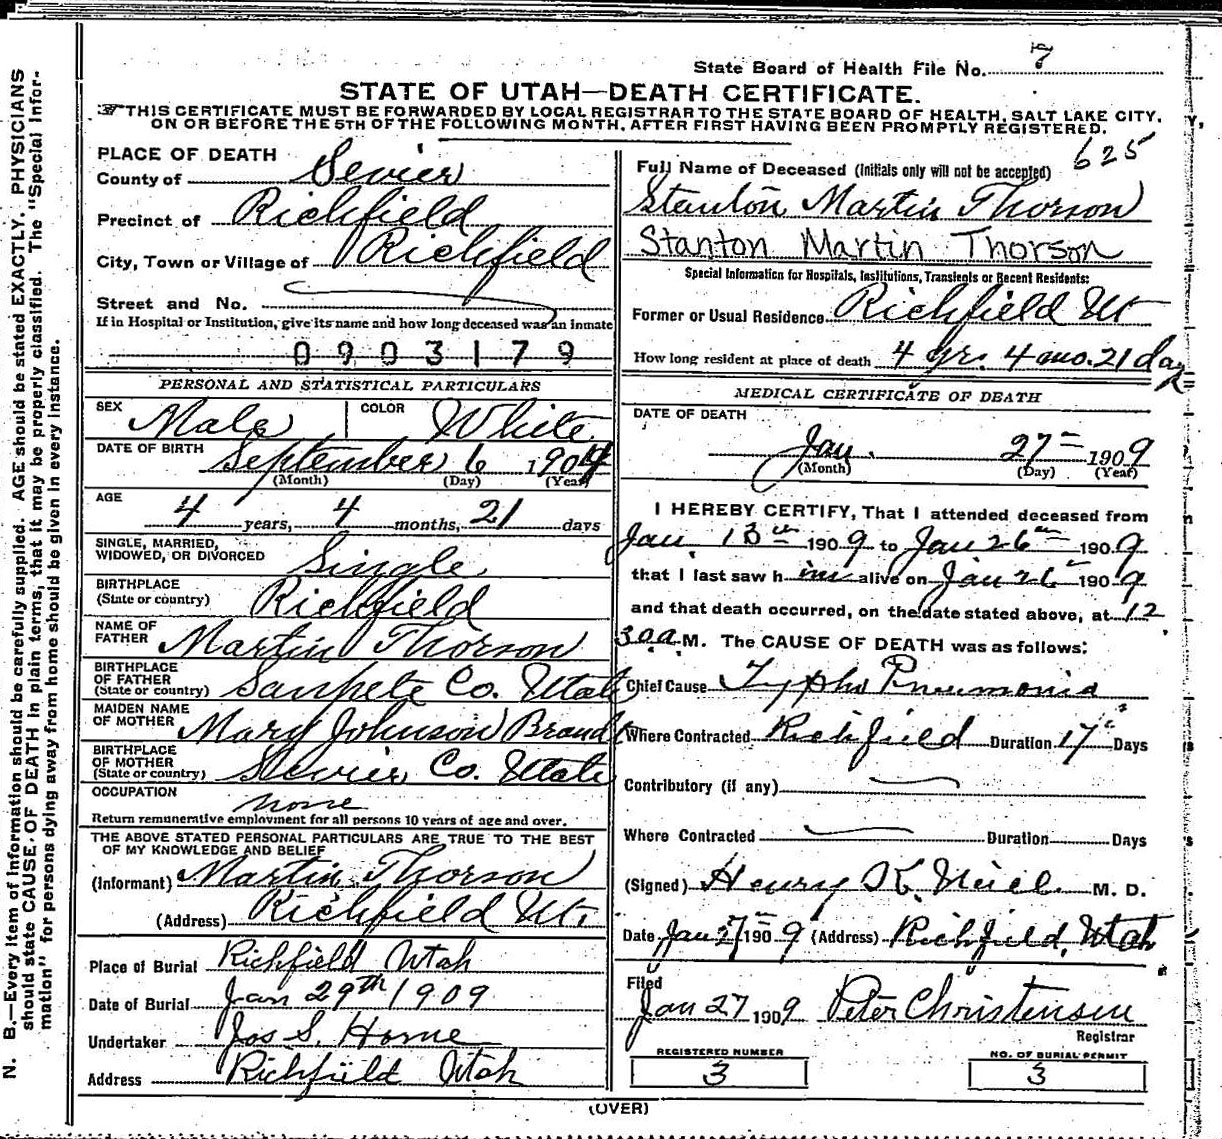 State Board of Health File No. 7
STATE OF UTAH—DEATH CERTIFICATE.
THIS CERTIFICATE MUST BE FORWARDED BY LOCAL REGISTRAR TO THE STATE BOARD OF HEALTH, SALT LAKE CITY,
ON OR BEFORE THE 5TH OF THE FOLLOWING MONTH, AFTER FIRST HAVING BEEN PROMPTLY REGISTERED.
PLACE OF DEATH
County of Sevier
Precinct of Richfield
City, Town or Village of Richfield
Street and No.
If in Hospital or Institution, give its name and how long deceased was an inmate
0903179
PERSONAL AND STATISTICAL PARTICULARS
SEX Male COLOR White
DATE OF BIRTH September 6 1904
(Month) (Day) (Year)
AGE
4 years, 4 months, 21 days
SINGLE, MARRIED,
WIDOWED, OR DIVORCED Single
BIRTHPLACE
(State or country) Richfield
NAME OF
FATHER Martin Thorson
BIRTHPLACE
OF FATHER
(State or country) Sanpete Co. Utah
MAIDEN NAME
OF MOTHER Mary Johnson Brandt
BIRTHPLACE
OF MOTHER
(State or country) Sevier Co. Utah
OCCUPATION
none
Return remunerative employment for all persons 10 years of age and over.
THE ABOVE STATED PERSONAL PARTICULARS ARE TRUE TO THE BEST
OF MY KNOWLEDGE AND BELIEF
(Informant) Martin Thorson
(Address) Richfield Ut.
Place of Burial Richfield Utah
Date of Burial Jan 29th 1909
Undertaker Jos S. Horne
Address Richfield Utah
625
Full Name of Deceased (Initials only will not be accepted)
Stanton Martin Thorson
Stanton Martin Thorson
Special Information for Hospitals, Institutions, Transients or Recent Residents:
Former or Usual Residence Richfield Ut
How long resident at place of death 4 yrs. 4 mo. 21 days
MEDICAL CERTIFICATE OF DEATH
DATE OF DEATH
Jan. 27th 1909
(Month) (Day) (Year)
I HEREBY CERTIFY, That I attended deceased from
Jan. 13th 1909 to Jan 26th 1909
that I last saw him alive on Jan 26th 1909
and that death occurred, on the date stated above, at 12
30 a M. The CAUSE OF DEATH was as follows:
Chief Cause Typho Pneumonia
Where Contracted Richfield Duration 17 Days
Contributory (if any)
Where Contracted Duration Days
(Signed) Henry K. Neill M. D.
Date Jan 27th 1909 (Address) Richfield, Utah
Filed
Jan 27 1909 Peter Christensen
Registrar
REGISTERED NUMBER NO. OF BURIAL PERMIT
3 3
(OVER)
N. B.—Every item of information should be carefully supplied. AGE should be stated EXACTLY. PHYSICIANS
should state CAUSE OF DEATH in plain terms, that it may be properly classified. The "Special Infor-
mation" for persons dying away from home should be given in every instance.